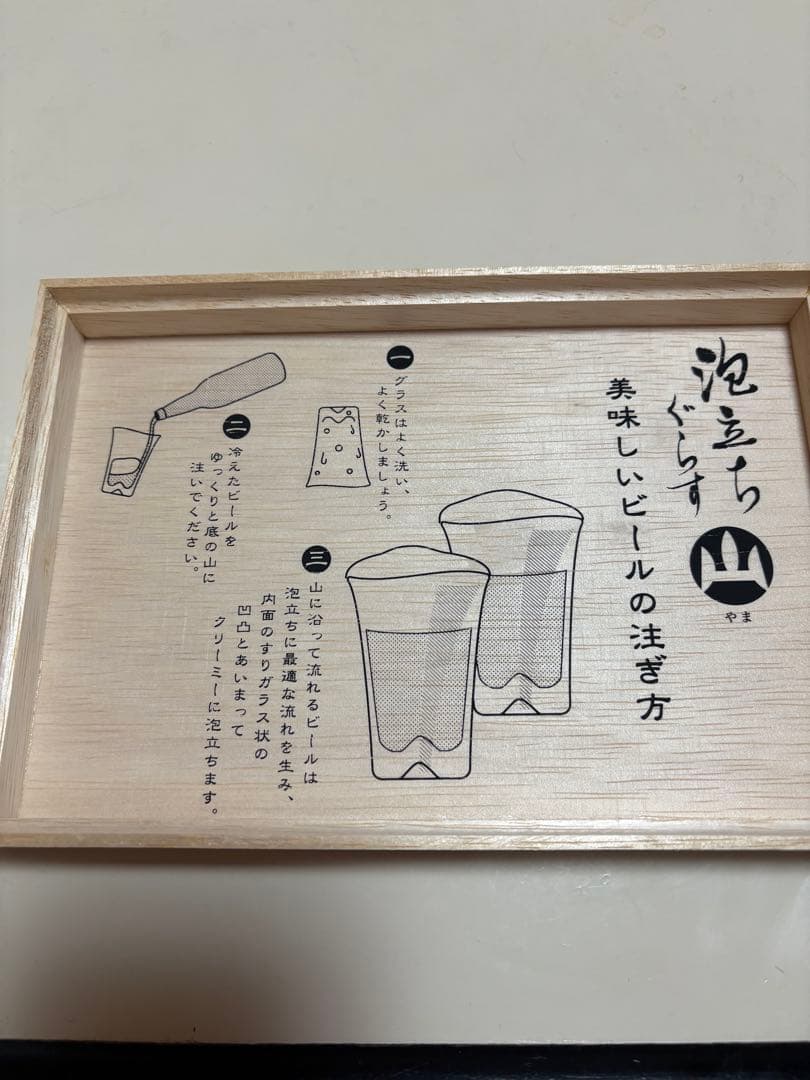 泡立ち
ぐらす
山
やま
美味しいビールの注ぎ方
一
グラスはよく洗い、
よく乾かしましょう。
二
冷えたビールを
ゆっくりと底の山に
注いでください。
三
山に沿って流れるビールは
泡立ちに最適な流れを生み、
内面のすりガラス状の
凹凸とあいまって
クリーミーに泡立ちます。